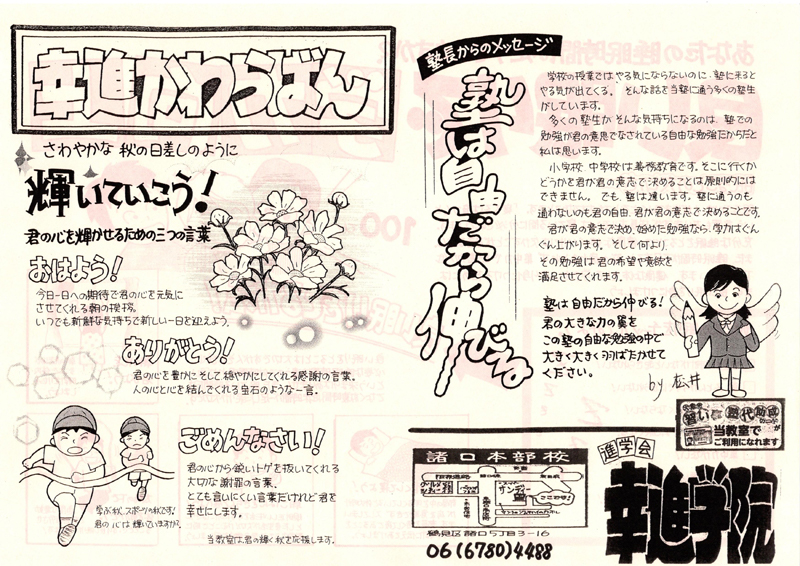 幸進かわらばん
さわやかな 秋の日差しのように
輝いていこう!
君の心を輝かせるための三つの言葉
おはよう!
今日一日への期待で君の心を元気に
させてくれる朝の挨拶。
いつでも新鮮な気持ちで新しい一日を迎えよう。
ありがとう!
君の心を豊かに そして、穏やかにしてくれる感謝の言葉。
人の心と心を結んでくれる宝石のような一言。
ごめんなさい!
君の心から鋭いトゲを抜いてくれる
大切な 謝罪の言葉。
とても言いにくい言葉だけれど君を
幸せにします。
学ぶ秋、スポーツの秋です!
君の心は輝いていますか。
当教室は、君の輝く秋を応援します。
塾長からのメッセージ
塾は自由だから伸びる
学校の授業ではやる気にならないのに、塾に来ると
やる気が出てくる。 そんな話を当塾に通う多くの塾生
がしています。
多くの塾生がそんな気持ちになるのは、塾での
勉強が君の意思でなされている自由な勉強だからだと
私は思います。
小学校、中学校は義務教育です。そこに行くか
どうかを君が君の意志で決めることは原則的には
できません。 でも、塾は違います。塾に通うのも
通わないのも君の自由、君が君の意志で決めることです。
君が君の意志で決め、始めた勉強なら、学力はぐん
ぐん上がります。そして何より、
その勉強は君の希望や意欲を
満足させてくれます。
塾は自由だから伸びる!
君の大きな力の翼を
この塾の自由な勉強の中で
大きく大きく羽ばたかせて
ください。
by 松井
習い
塾代助成
当教室で
ご利用になれます
諸口本部校
サンディ
ここです!
鶴見区諸口5丁目3-16
06(6780)4488
進学会
幸進学院